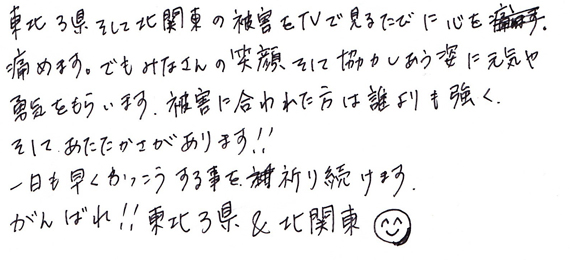 東北3県そして北関東の被害をTVで見るたびに心を
痛めます。でもみなさんの笑顔そして協力しあう姿に元気や
勇気をもらいます。被害に合われた方は誰よりも強く、
そして、あたたかさがあります!!
一日も早くかっこうする事を祈り続けます。
がんばれ!!東北3県&北関東